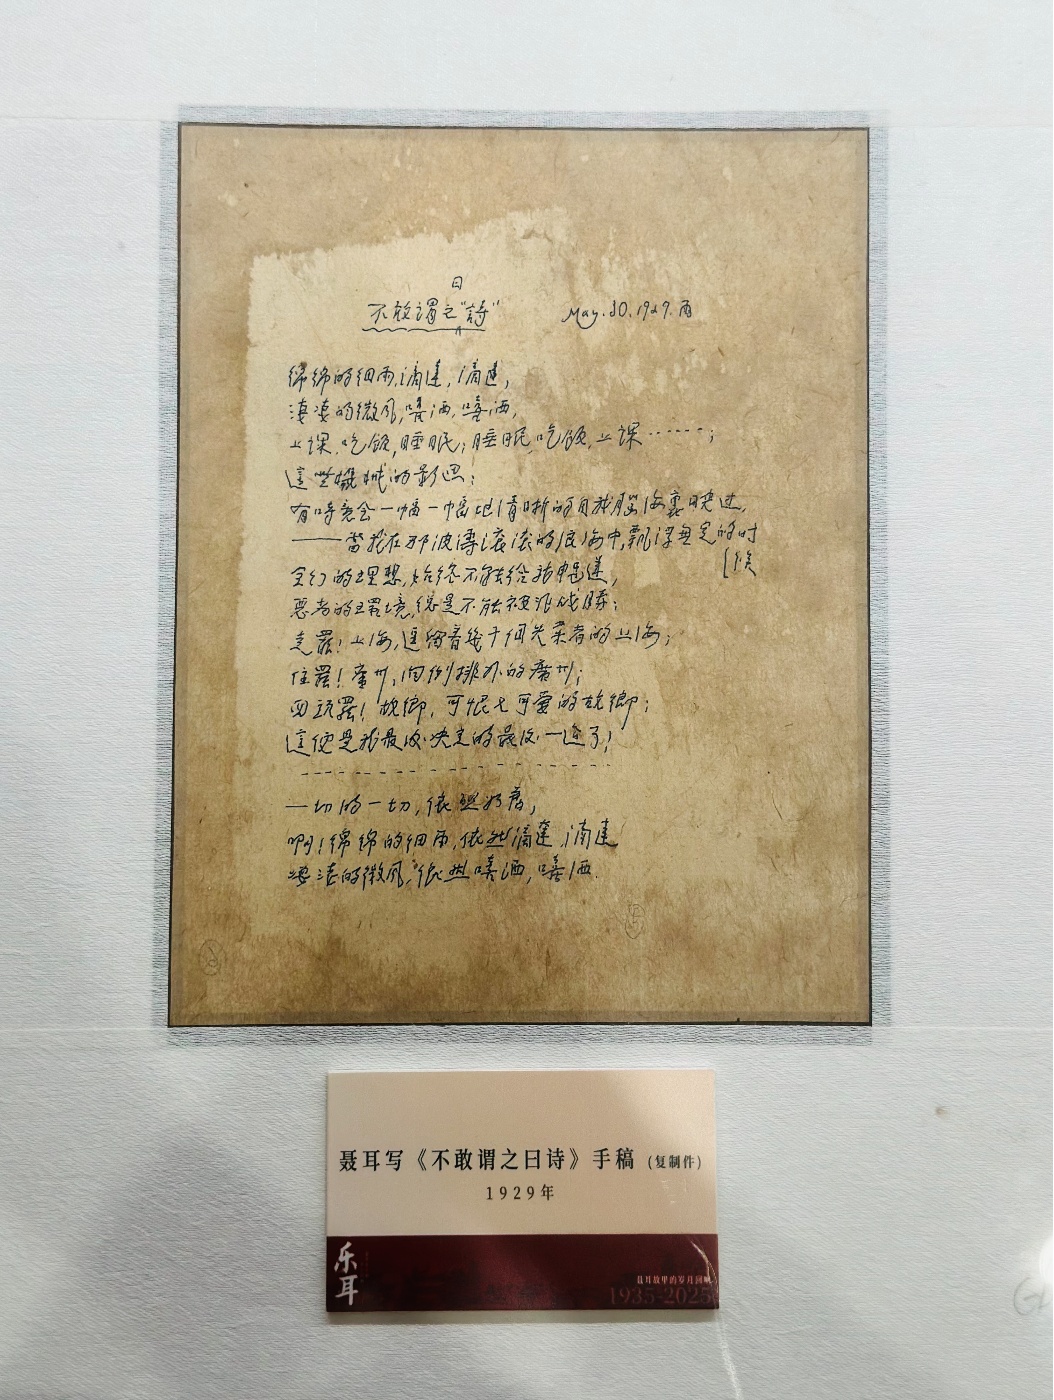 不敢谓之曰"詩" May.30.1929.雨
绵绵的细雨,滴達,滴達,
淒淒的微风,嘻洒,嘻洒,
上课,吃饭,睡眠;睡眠,吃饭,上课……;
這些機械的影思;
有時竟会一幅一幅地清晰的自我腦海裏映过,
——當我在那波濤滚滚的浪海中,飄浮無定的时候
的理想,始终不能给我
惡者的环境,總是不能被我战勝;
走罷!上海,逗留着幾千個失業者的上海;
住罷!廣州,内例排外的廣州;
回玩罷!故鄉,可恨也可愛的故鄉;
這便是我最後决定的最後一途了!
一切的一切,依然如舊,
啊!绵绵的细雨,依然滴達,滴達
淒淒的微风,依然嘻洒,嘻洒.
聂耳写《不敢谓之曰诗》手稿(复制件)
1929年
乐耳
聂耳故里的岁月回响
1935-2025